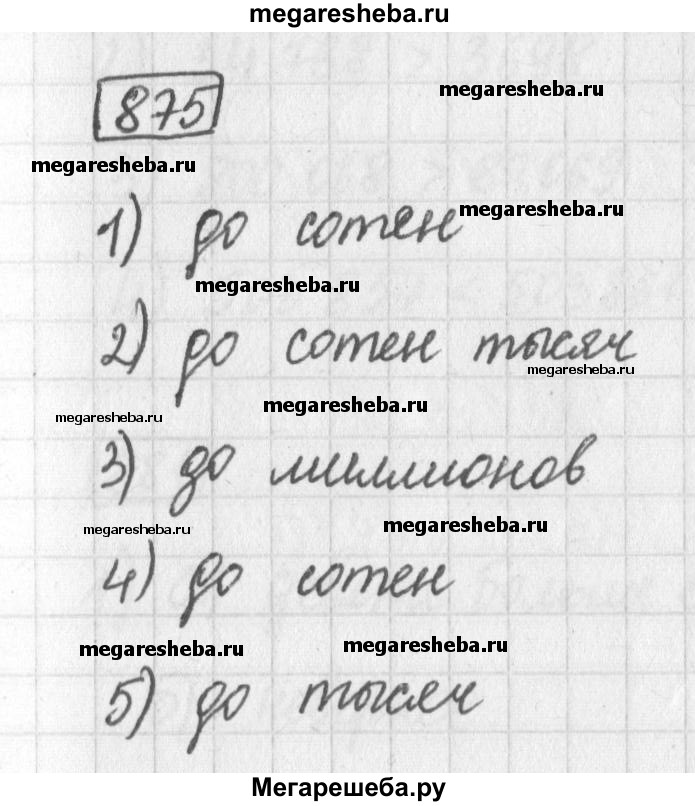 megaresheba.ru
megaresheba.ru
875
megaresheba.ru
1) до сотен
megaresheba.ru
megaresheba.ru
2) до сотен тысяч
megaresheba.ru
megaresheba.ru
megaresheba.ru
3) до миллионов
megaresheba.ru
megaresheba.ru
4) до сотен
megaresheba.ru
megaresheba.ru
5) до тысяч
Мегарешеба.ру